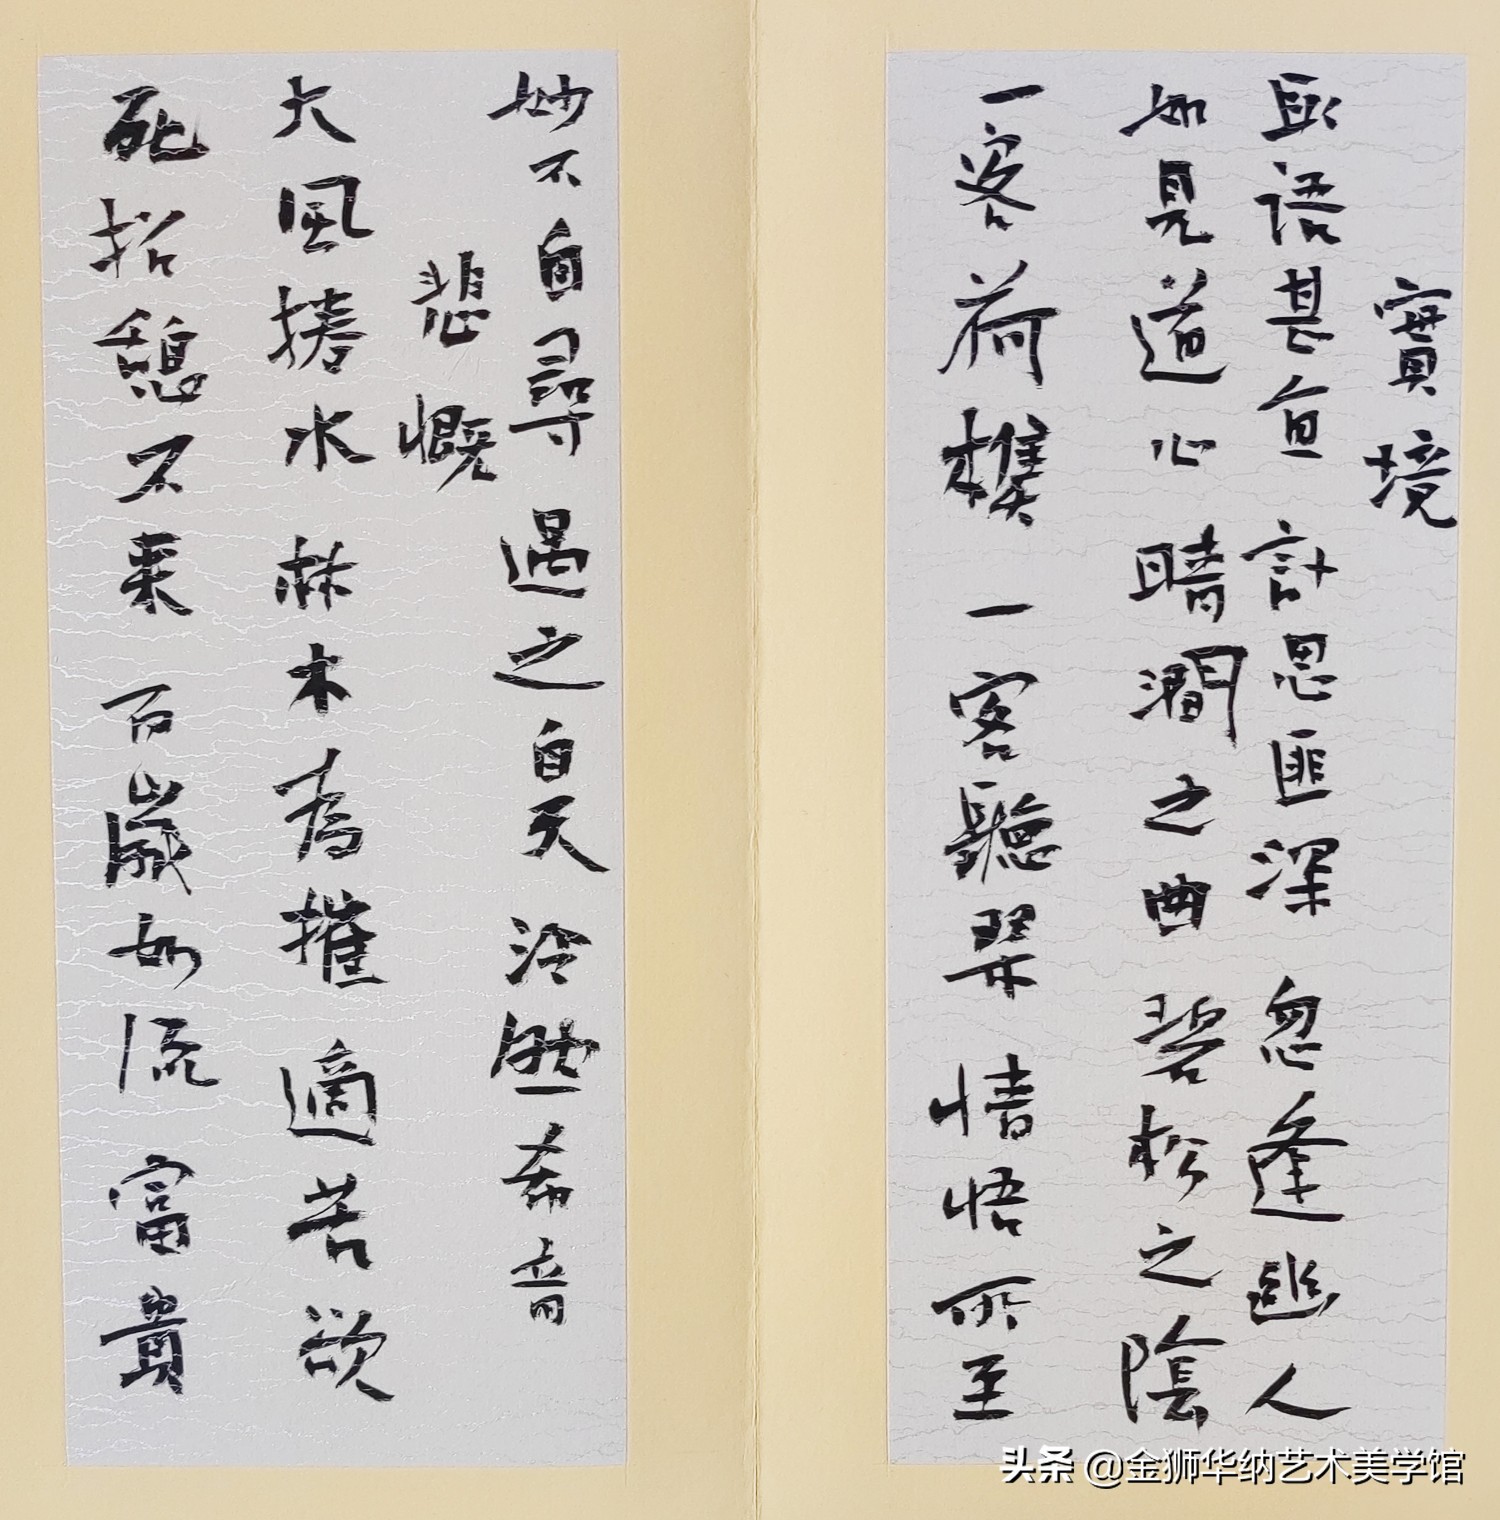 實境
取語甚直計思匪深忽逢幽人
如見道心晴澗之曲碧松之陰
一客荷樵一客聽琴情悟所至
妙不自尋遇之自天泠然希音
悲慨
大風捲水林木為摧適苦欲
死招憩不來百歲如流富貴
头条 @金狮华纳艺术美学馆